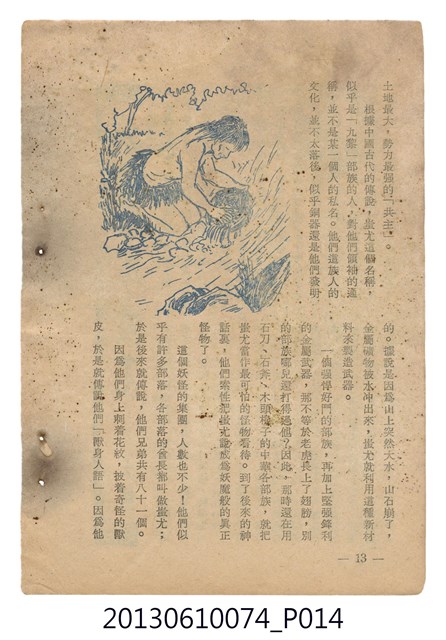 土地最大，勢力最強的「共主」。
根據中國古代的傳說，蚩尤這個名稱，
似乎是「九黎」部族的人，對他們領袖的通
稱，並不是某一個人的私名。他們這族人的
文化，並不太落後，似乎銅器還是他們發明
的。據說是因為山上突然大水，山石崩了，
金屬礦物被水冲出來，蚩尤就利用這種新材
料來製造武器。
一個強悍好鬥的部族，再加上堅強鋒利
的金屬武器，那不等於老虎長上了翅膀，別
的部族哪兒還打得過他？因此，那時還在用
石刀、石斧、木頭棍子的中華各部族，就把
蚩尤當作最可怕的怪物看待。到了後來的神
話裏，他們索性把蚩尤說成為妖魔般的真正
怪物了。
這個妖怪的集團，人數也不少！他們似
乎有許多部落，各部落的酋長都叫做蚩尤；
於是後來就傳說，他們兄弟共有八十一個。
因為他們身上刺着花紋，披着奇怪的獸
皮，於是就傳說他們「獸身人語」。因為他
— 13 —
20130610074_P014